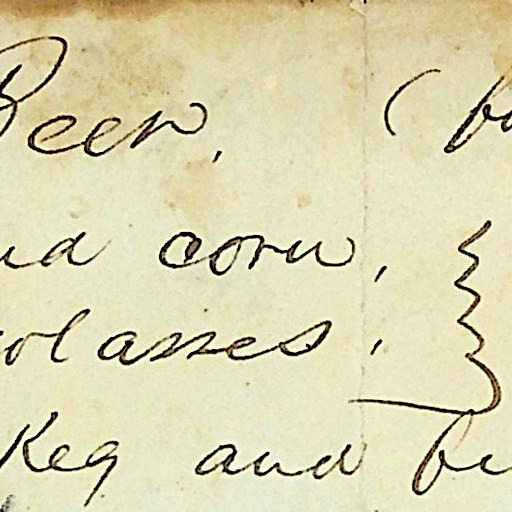 Beer. (
corn,
molasses,
Keg and